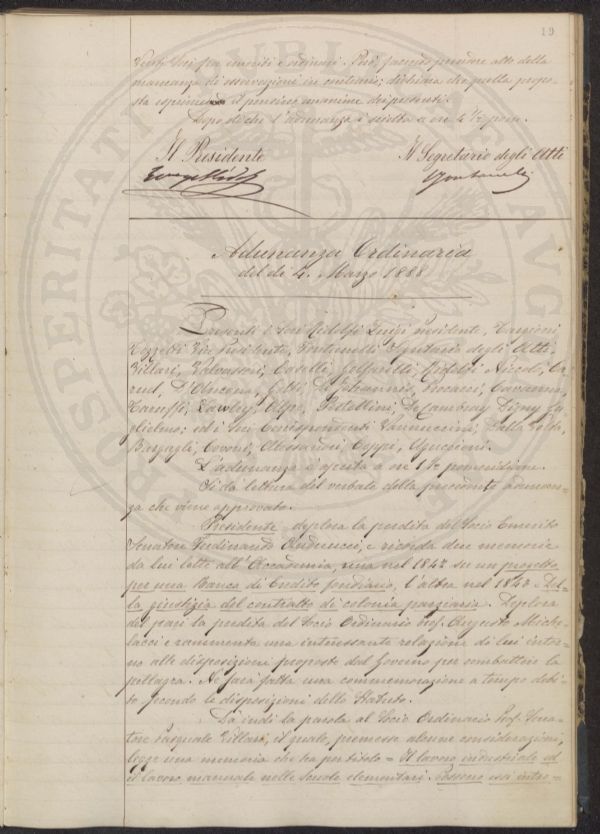 19
mancanza di osservazioni in contrario, dichiara che quella propo-
sta esprime il pensiero unanime dei presenti.
Dopo di che l'adunanza è sciolta a ore 4 ½ pom.
Il Presidente Il Segretario degli Atti
Adunanza Ordinaria
del dì 4. Marzo 1888
Presenti i Soci Ridolfi Luigi presidente, Targioni
Tozzetti Vice Presidente, Fontanelli Segretario degli Atti,
Villari, Caselli, Golfarelli, Ridolfi Niccolò,
D'Ancona, De Johannis,
Caruffi, Bawley, Alpe, Pestellini, De Cambray Digny Gu-
glielmo; ed i Soci Corrispondenti Vannuccini, Della Volpe,
Alessandri, Ceppi, Uguccioni.
L'adunanza è aperta a ore 1 ½ pomeridiane.
Si dà lettura del verbale della precedente adunan-
za che viene approvato.
Presidente deplora la perdita del Socio Emerito
Senatore Ferdinando Andreucci, e ricorda due memorie
da lui lette all'Accademia, una nel 1847 su un progetto
per una Banca di Credito fondiario, l'altra nel Del-
la giustizia del contratto di colonia parziaria. Deplora
del pari la perdita del Socio Ordinario Prof. Augusto Miche-
lacci e rammenta una interessante relazione di lui intor-
no alle disposizioni proposte dal Governo per combattere la
pellagra. Ne sarà fatta una commemorazione a tempo debi-
to secondo le disposizioni dello Statuto.
Dà indi la parola al Socio Ordinario Prof. Sena-
tore Pasquale Villari, il quale, premesse alcune considerazioni,
legge una memoria che ha per titolo = Il lavoro industriale ed
il lavoro manuale nelle scuole elementari. Possono essi intro-